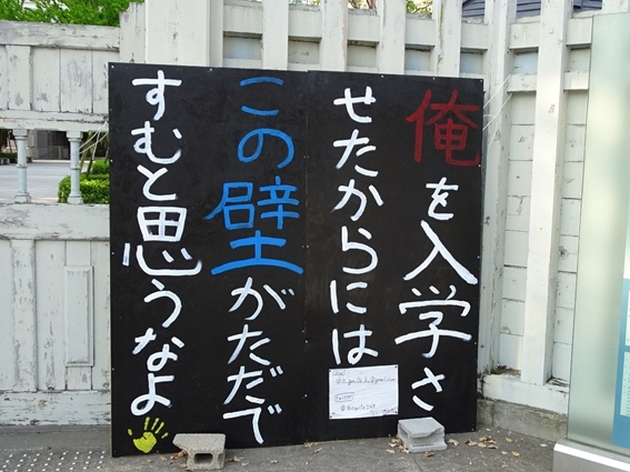 俺を入学さ
せたからには
この壁がただで
すむと思うなよ